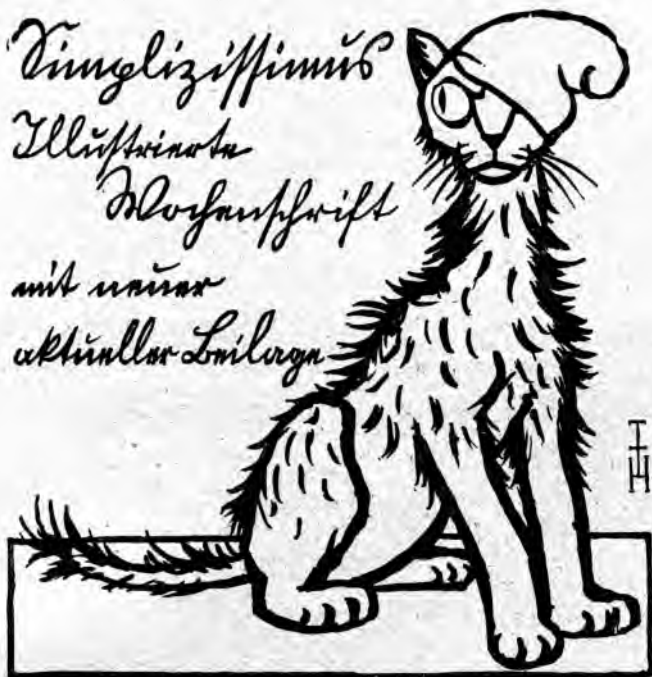 Simplizissimus
Illustrierte
Wochenschrift
mit neuer
aktueller Beilage